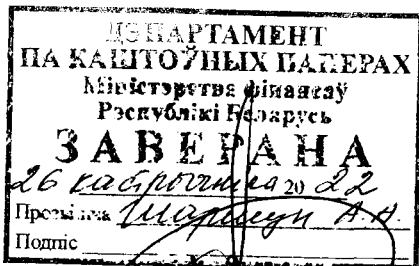 ДЭПАРТАМЕНТ
ПА КАШТОЎНЫХ ПАПЕРАХ
Міністэрства фінансаў
Рэспублікі Беларусь
ЗАВЕРАНА
26 2022
Прозвішча А.А.
Подпіс